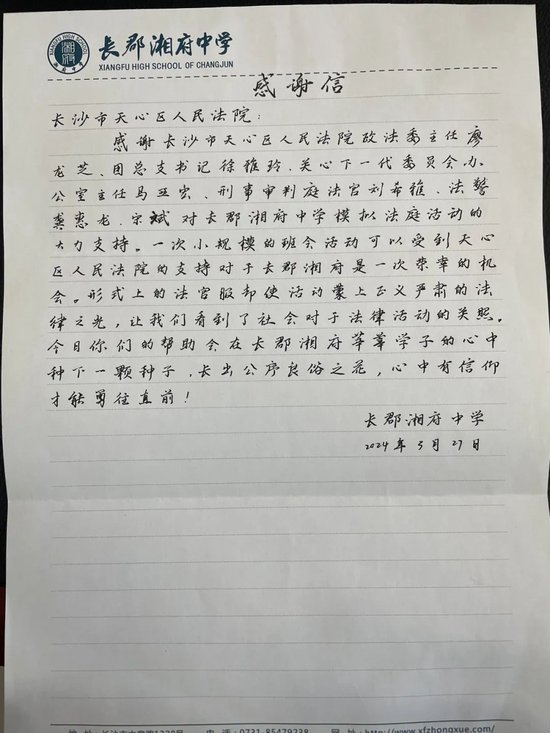 长郡湘府中学
XIANGFU HIGH SCHOOL OF CHANGJUN
感谢信
长沙市天心区人民法院:
感谢长沙市天心区人民法院政法委主任廖
龙芝、团总支书记徐雅玲、关心下一代委员会办
公室主任马亚宏、刑事审判庭法官刘希雅、法警
龚惠龙、宋斌对长郡湘府中学模拟法庭活动的
大力支持。一次小规模的班会活动可以受到天心
区人民法院的支持对于长郡湘府是一次荣幸的机
会。形式上的法官服却使活动蒙上正义严肃的法
律之光,让我们看到了社会对于法律活动的关照。
今日你们的帮助会在长郡湘府莘莘学子的心中
种下一颗种子,长出公序良俗之花,心中有信仰
才能勇往直前!
长郡湘府中学
2024年5月27日
电 话:0731-85479238 网 址:http://www.xfzhongxue.com